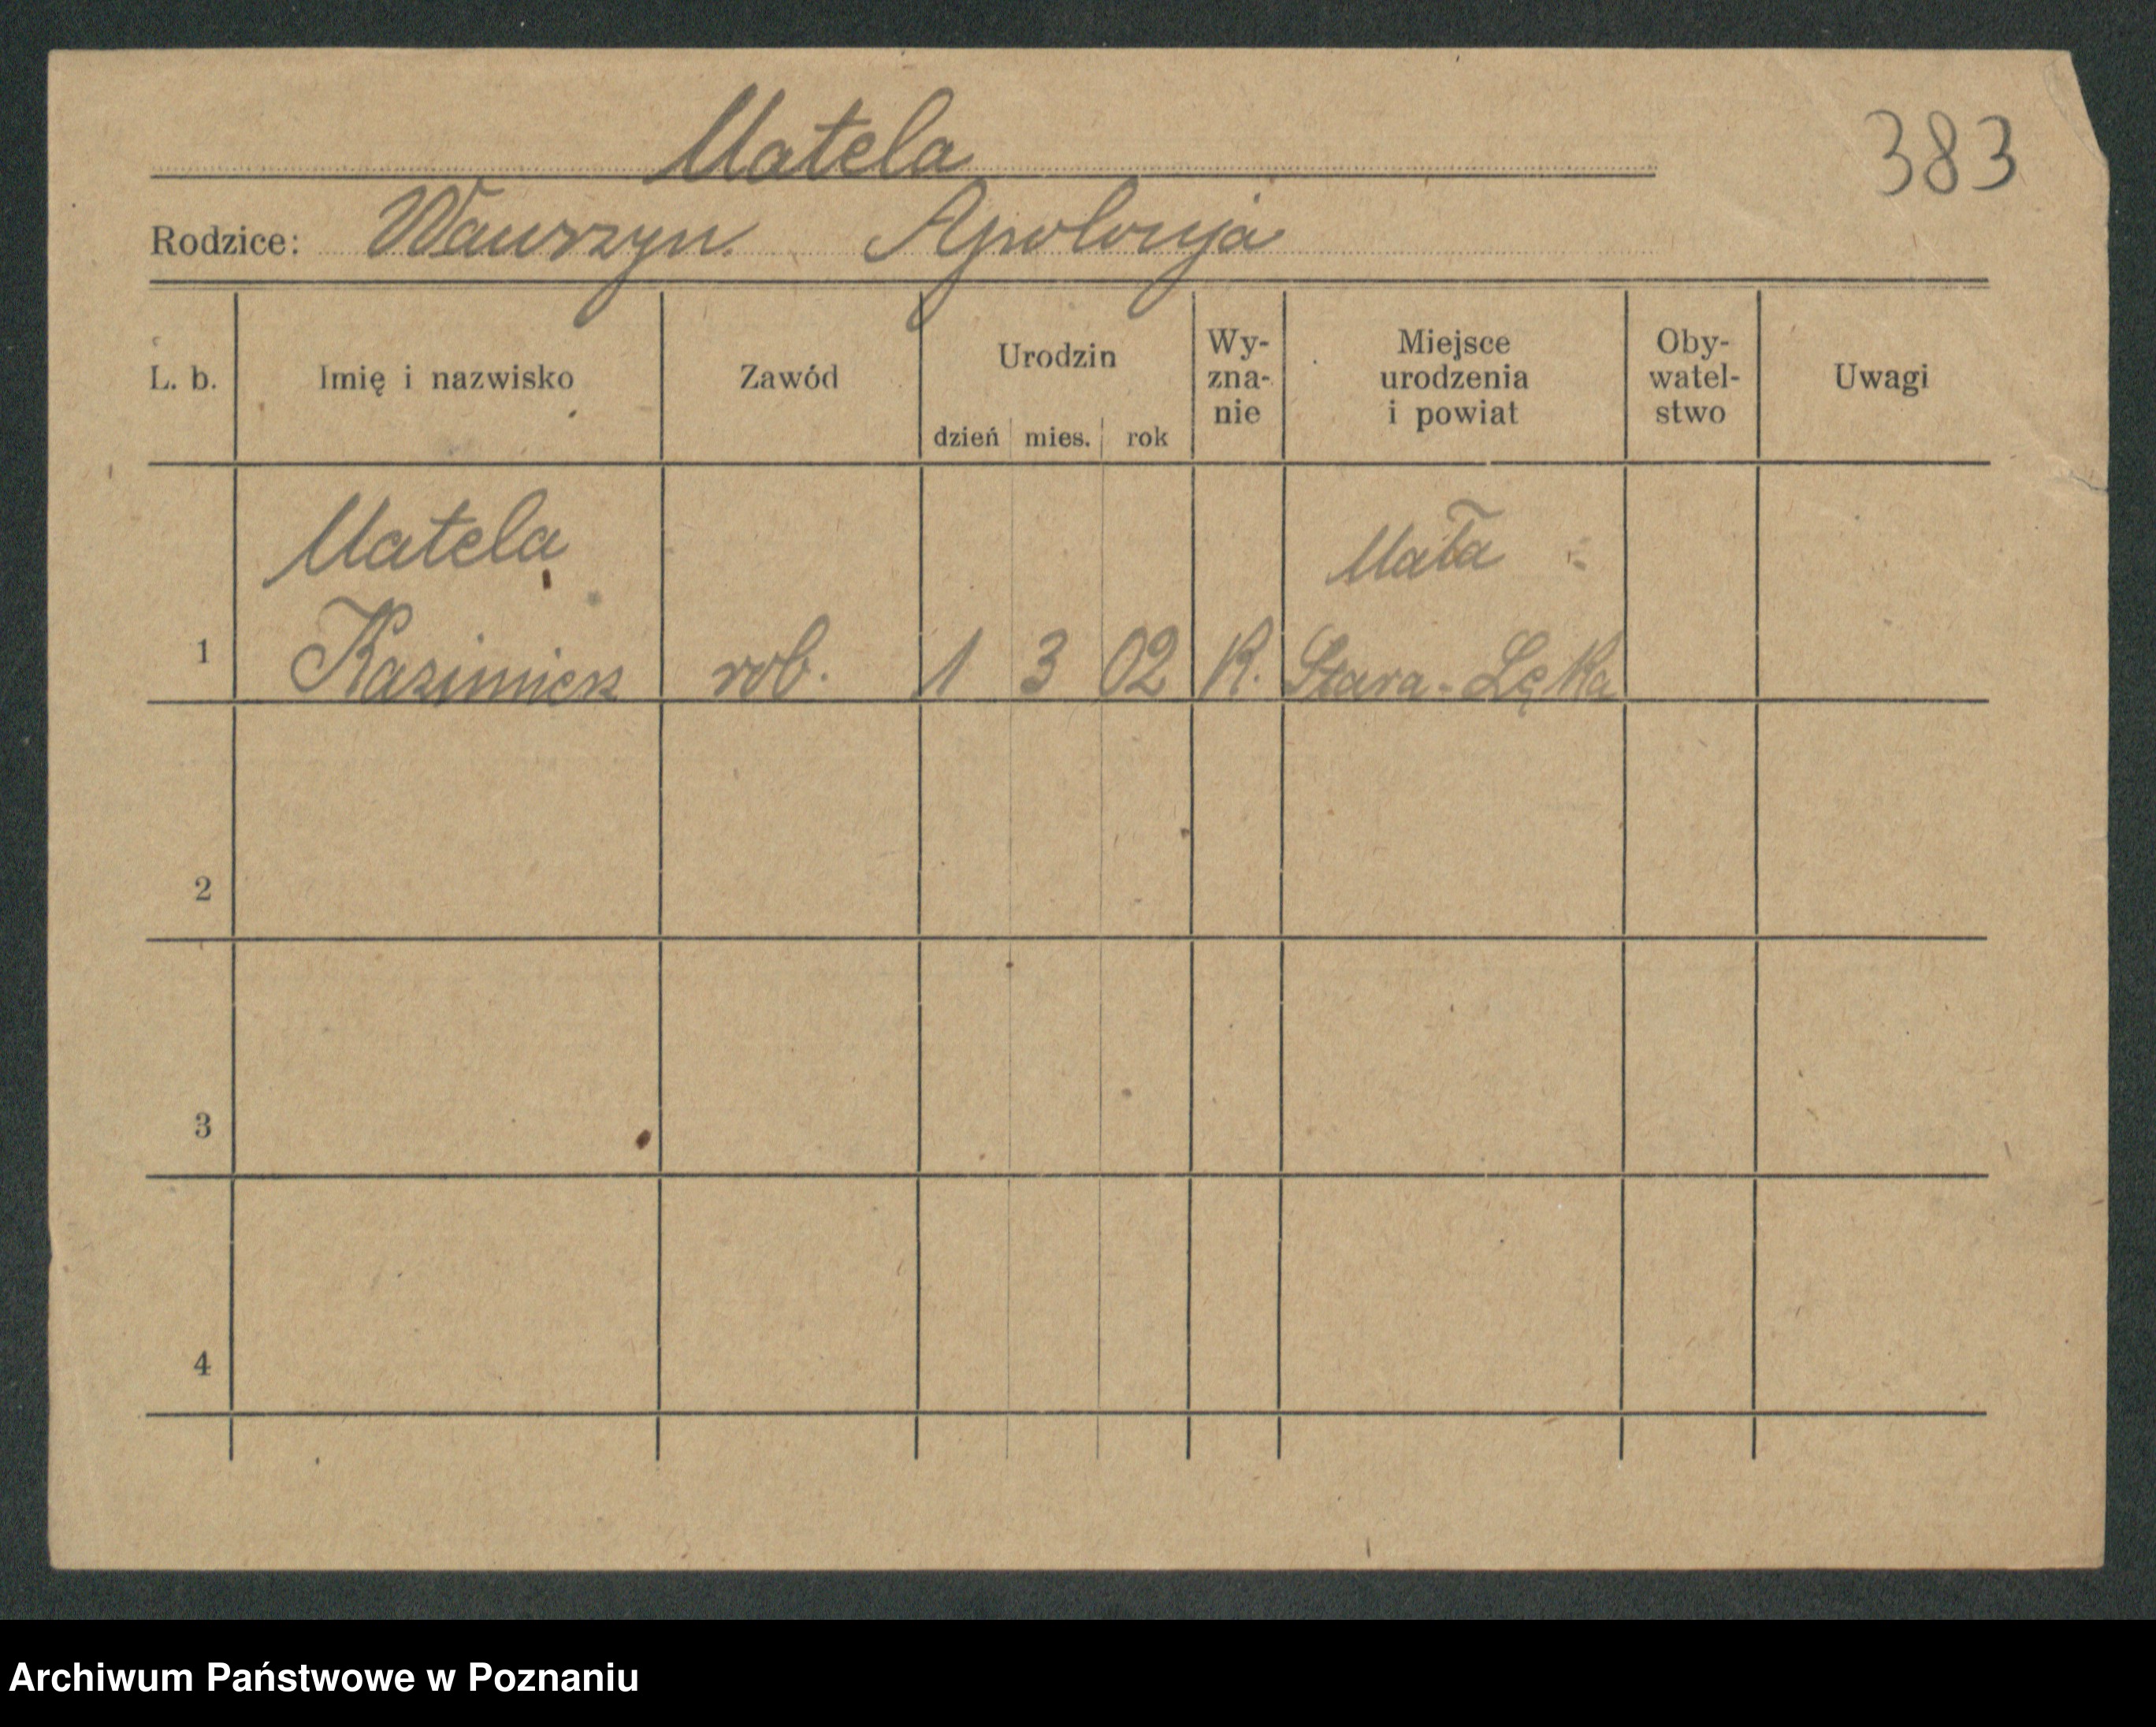 Matela
383
Rodzice: Wawrzyn. Apolonja
L. b. Imię i nazwisko Zawód Urodzin dzień mies. rok Wy-zna-nie Miejsce urodzenia i powiat Oby-watel-stwo Uwagi
Matela Mała
1 Kazimierz rob. 1 3 02 K. Stara-Łęka
2
3
4
Archiwum Państwowe w Poznaniu